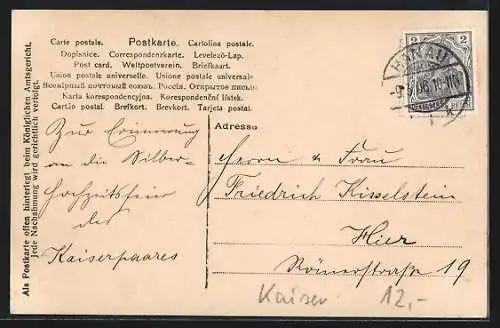 Carte postale. Postkarte. Cartolina postale.
Dopisnice. Correspondenzkarte. Levelező-Lap.
Post card. Weltpostverein. Briefkaart.
Union postale universelle. Unione postale universale
Всемірный почтовый союзъ. Россія. Открытое письмо.
Karta korespondencyjna. Korespondenční lístek.
Cartão postal. Brefkort. Brevkort. Tarjeta postal.
Als Postkarte offen hinterlegt beim Königlichen Amtsgericht.
Jede Nachahmung wird gerichtlich verfolgt.
Zur Erinnerung
an die Silber-
hochzeitsfeier
des
Kaiserpaares
Adresse
2 2
HANAU
Herrn & Frau
Friedrich Kisselstein
Hier
Römerstraße 19
Kaiser 12,-